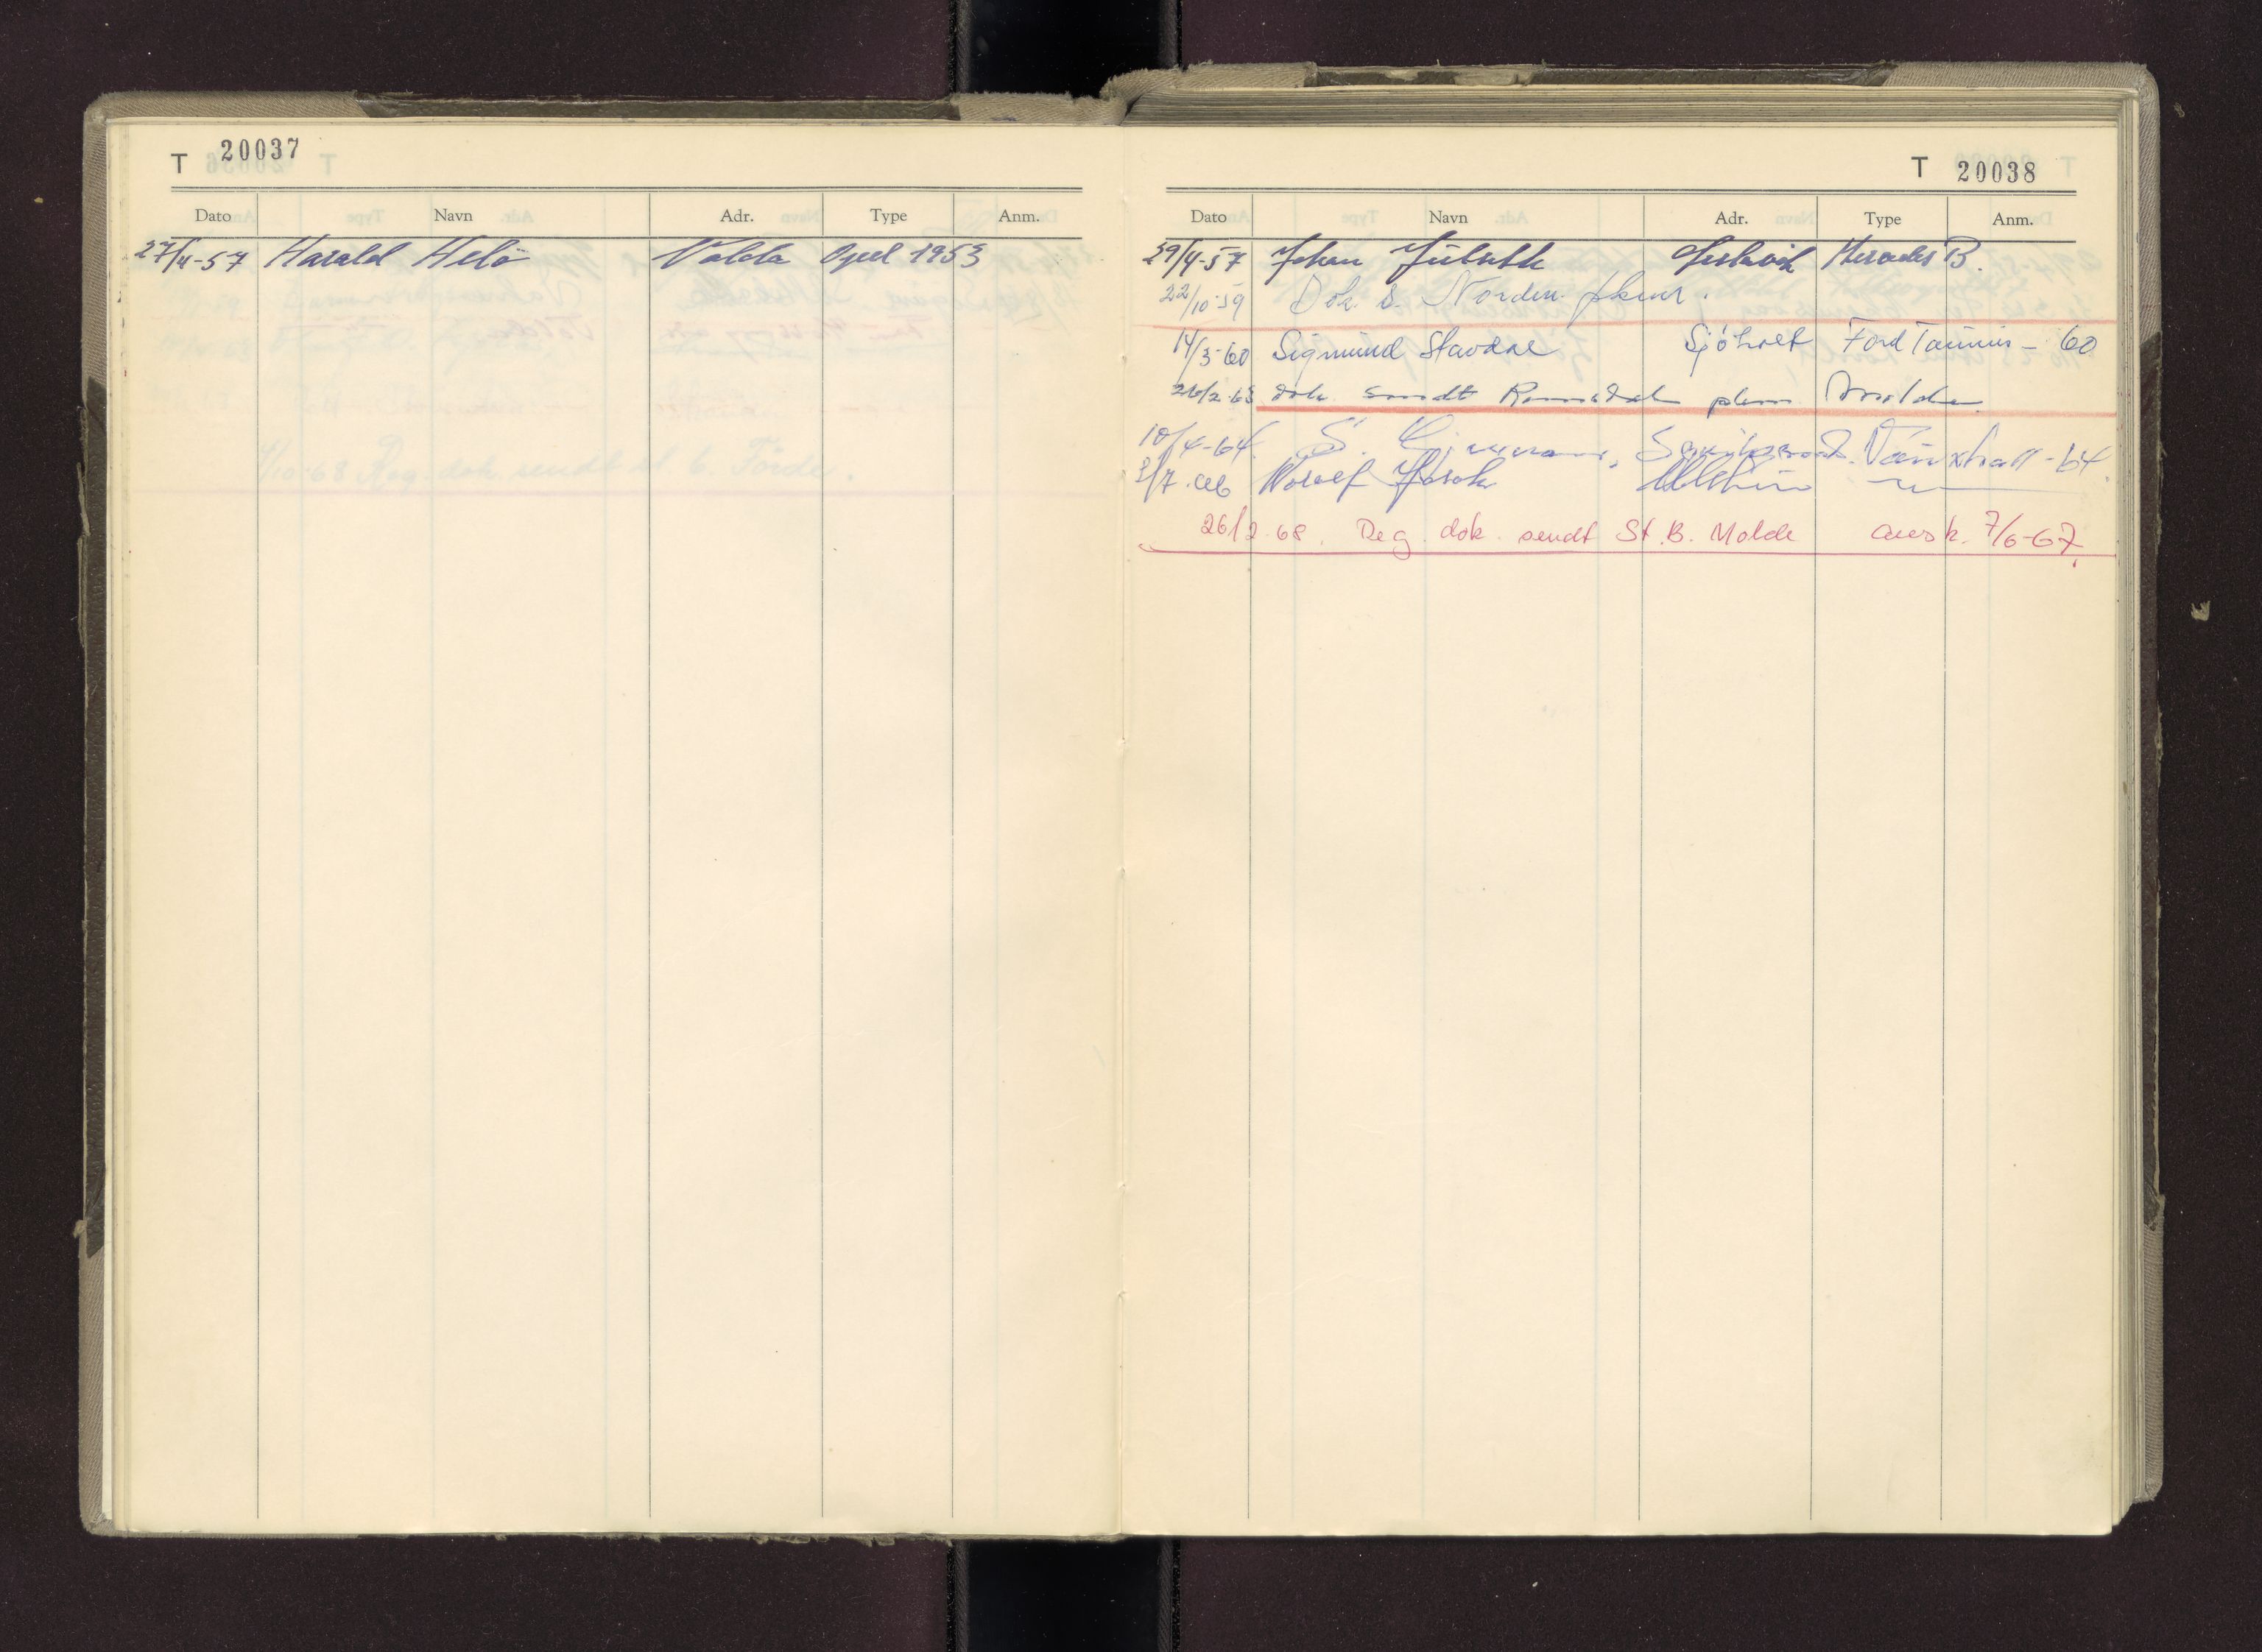 T 20037
Dato Navn Adr. Type Anm.
27/4-57 Harald Helö Volda Opel 1953
T 20038
Dato Navn Adr. Type Anm.
29/4-57 Johan Mercedes B.
22/10-59 Dok. s. Norden
14/3-60 Sigmund Stavdal Sjöholt Ford Taunus - 60
26/2-63 dok sendt Romsdal Molde
10/4-64 S. Vauxhall - 64
2/7.66
26/2 68. Reg. dok. sendt St. B. Molde avsk. 7/6-67.